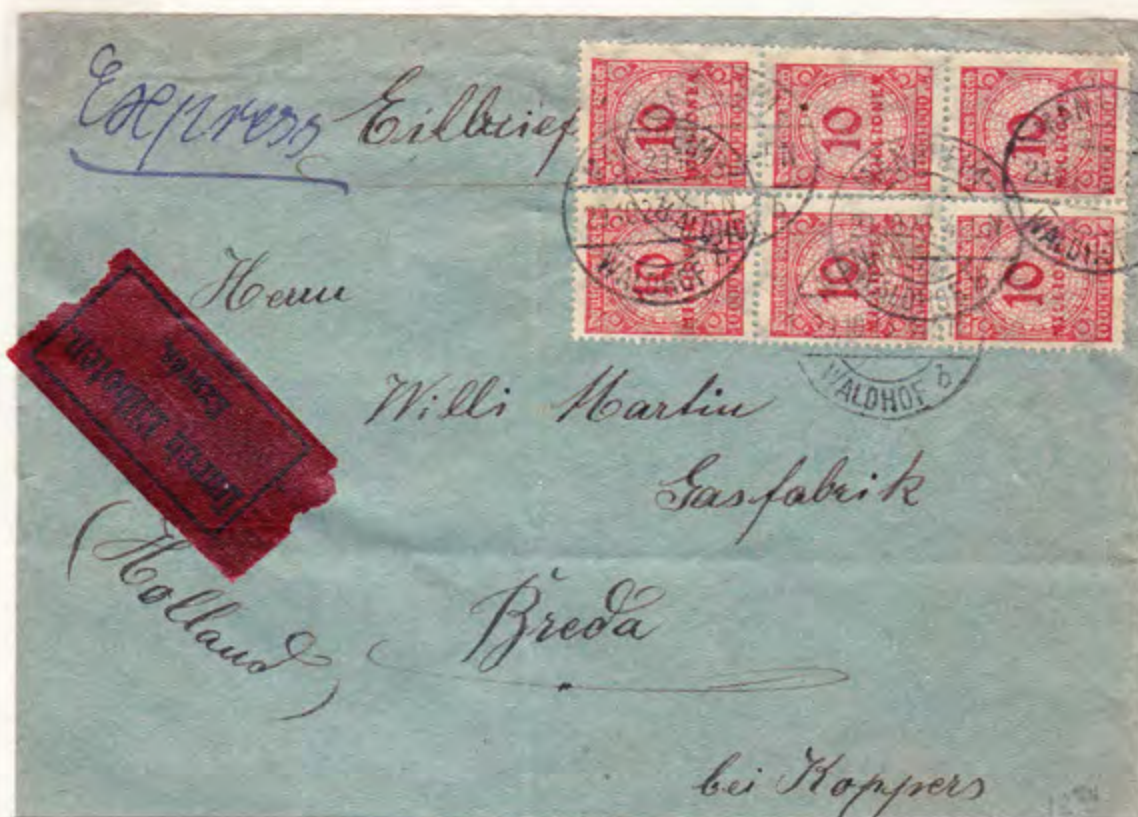 Express Eilbrief
10 MILLIONEN 10 MILLIONEN 10 MILLIONEN
10 MILLIONEN 10 MILLIONEN 10 MILLIONEN
WALDHOF
WALDHOF b
Herrn
Durch Eilboten.
Exprès.
Willi Martin
Gasfabrik
(Holland)
Breda
bei Koppers